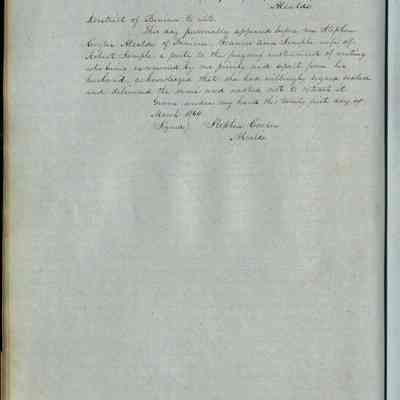 Alcalde
District of Benicia to wit.
This day personally appeared before me Stephen
Cooper Alcalde of Benicia, Frances Ann Semple wife of
Robert Semple, a party to the foregoing instrument of writing
who being examined by me privily and apart from her
husband, acknowledged that she had willingly signed sealed
and delivered the same and wished not to retract it
Given under my hand this twenty first day of
March
Signed Stephen Cooper
Alcalde